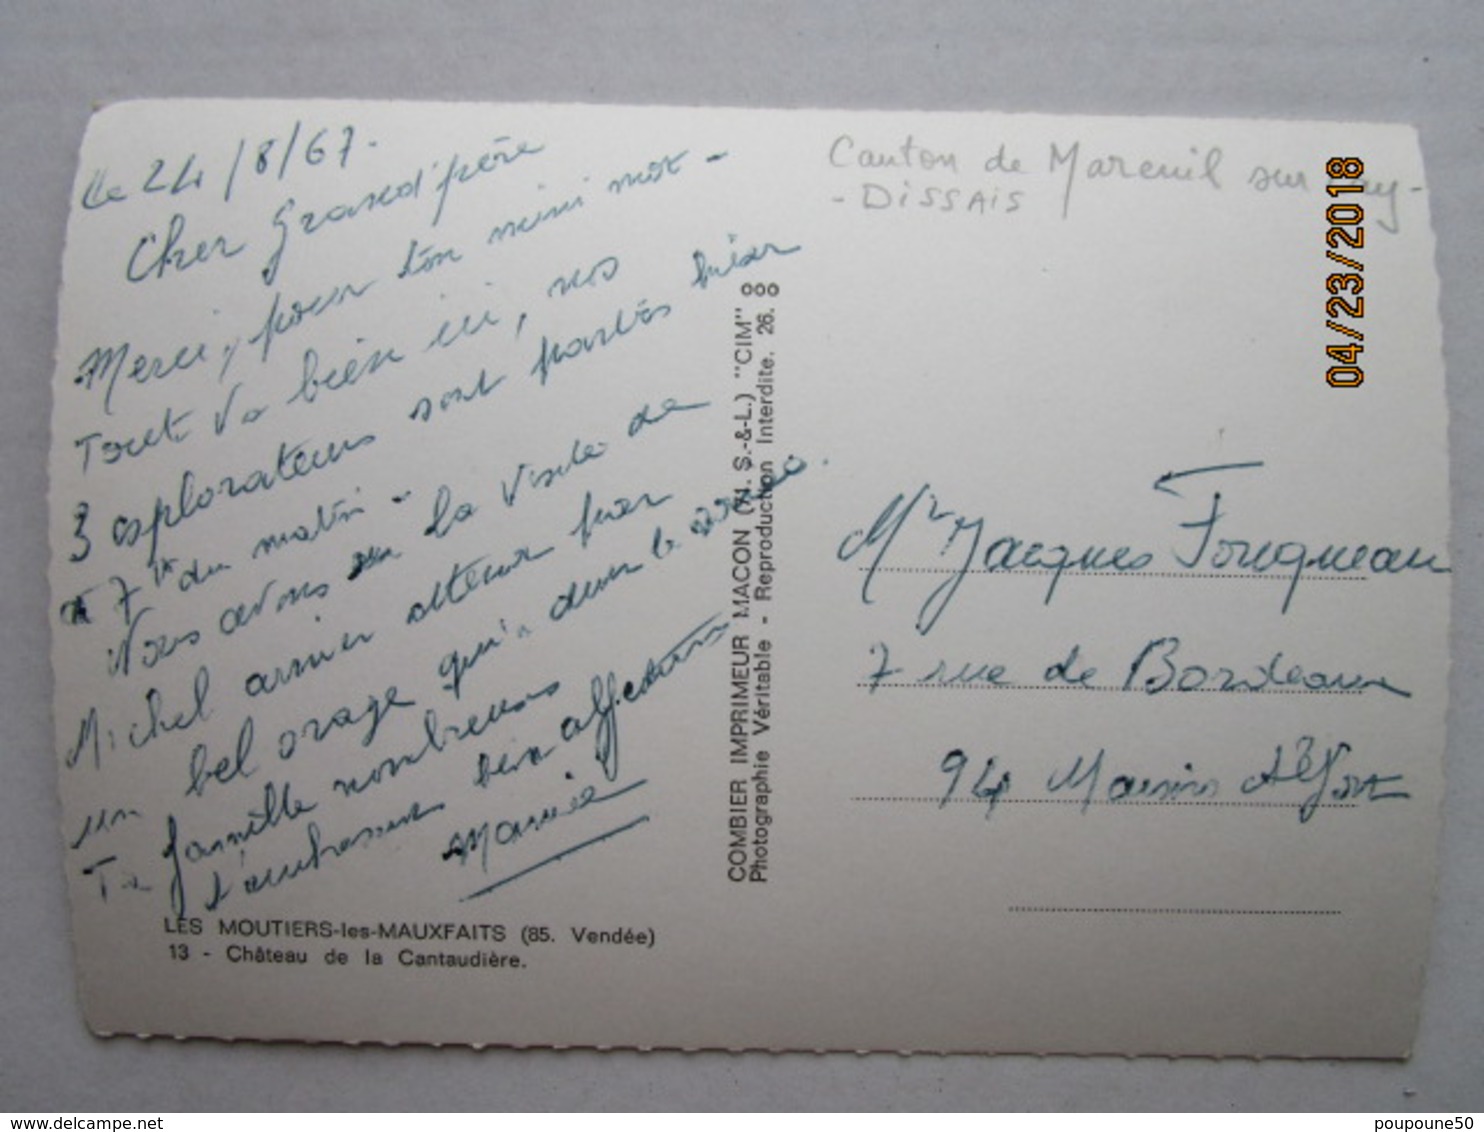 Le 24/8/67.
Cher Grand'père
Merci, pour ton mini mot -
Tout va bien ici, nos
3 explorateurs sont partis hier
à 7h du matin -
Nous avons eu la visite de
Michel arrivé
un bel orage qui a
Ta famille nombreuse
t'embrasse bien affectueusement
LES MOUTIERS-les-MAUXFAITS (85. Vendée)
13 - Château de la Cantaudière.
COMBIER IMPRIMEUR MACON (M. S.-&-L.) "CIM"
Photographie Véritable - Reproduction Interdite. 26. 000
Canton de Mareuil sur Lay -
- DISSAIS
Mr Jacques Fouqueau
7 rue de Bordeaux
94 Maisons Alfort
04/23/2018
www.delcampe.net
poupoune50